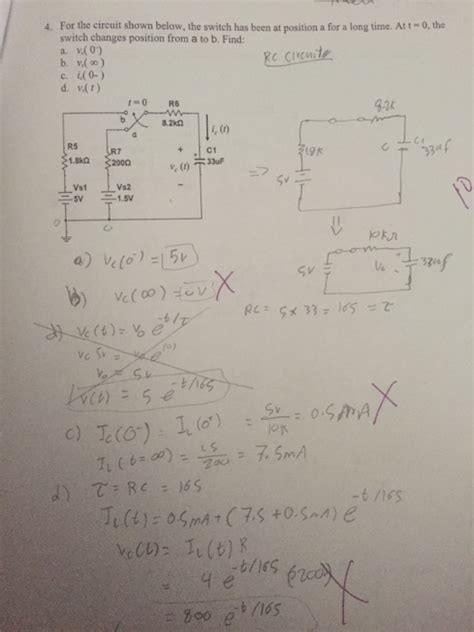 4. For the circuit shown below, the switch has been at position a for a long time. At t = 0, the
switch changes position from a to b. Find:
a. vc(0-)
b. vc(∞)
c. ic(0-)
d. vc(t)
RC Circuits
t = 0
R6
8.2kΩ
b
a
ic (t)
R5
1.8kΩ
R7
200Ω
+
vc (t)
-
C1
33uF
Vs1
5V
Vs2
1.5V
0
0
=>
8.2K
1.8K
C
C1
33uf
5V
10
⇓
10KΩ
5V
Vc
+
-
33uf
a) Vc(0-) = 5V
b) Vc(∞) = X
RC = 5 x 33 = 165 = τ
d) Vc(t) = V0 e^-t/τ
Vc 5V = V0 e^(0)
V0 = 5V
V(t) = 5 e^-t/165
c) Ic(0-) = IL(0+) = 5V/10K = 0.5mA X
IL(t=∞) = 1.5/200 = 7.5mA
d) τ = RC = 165
IL(t) = 0.5mA + (7.5 + 0.5mA) e^-t/165
Vc(t) = IL(t) R
= 4 e^-t/165 (200) X
= 800 e^-t/165